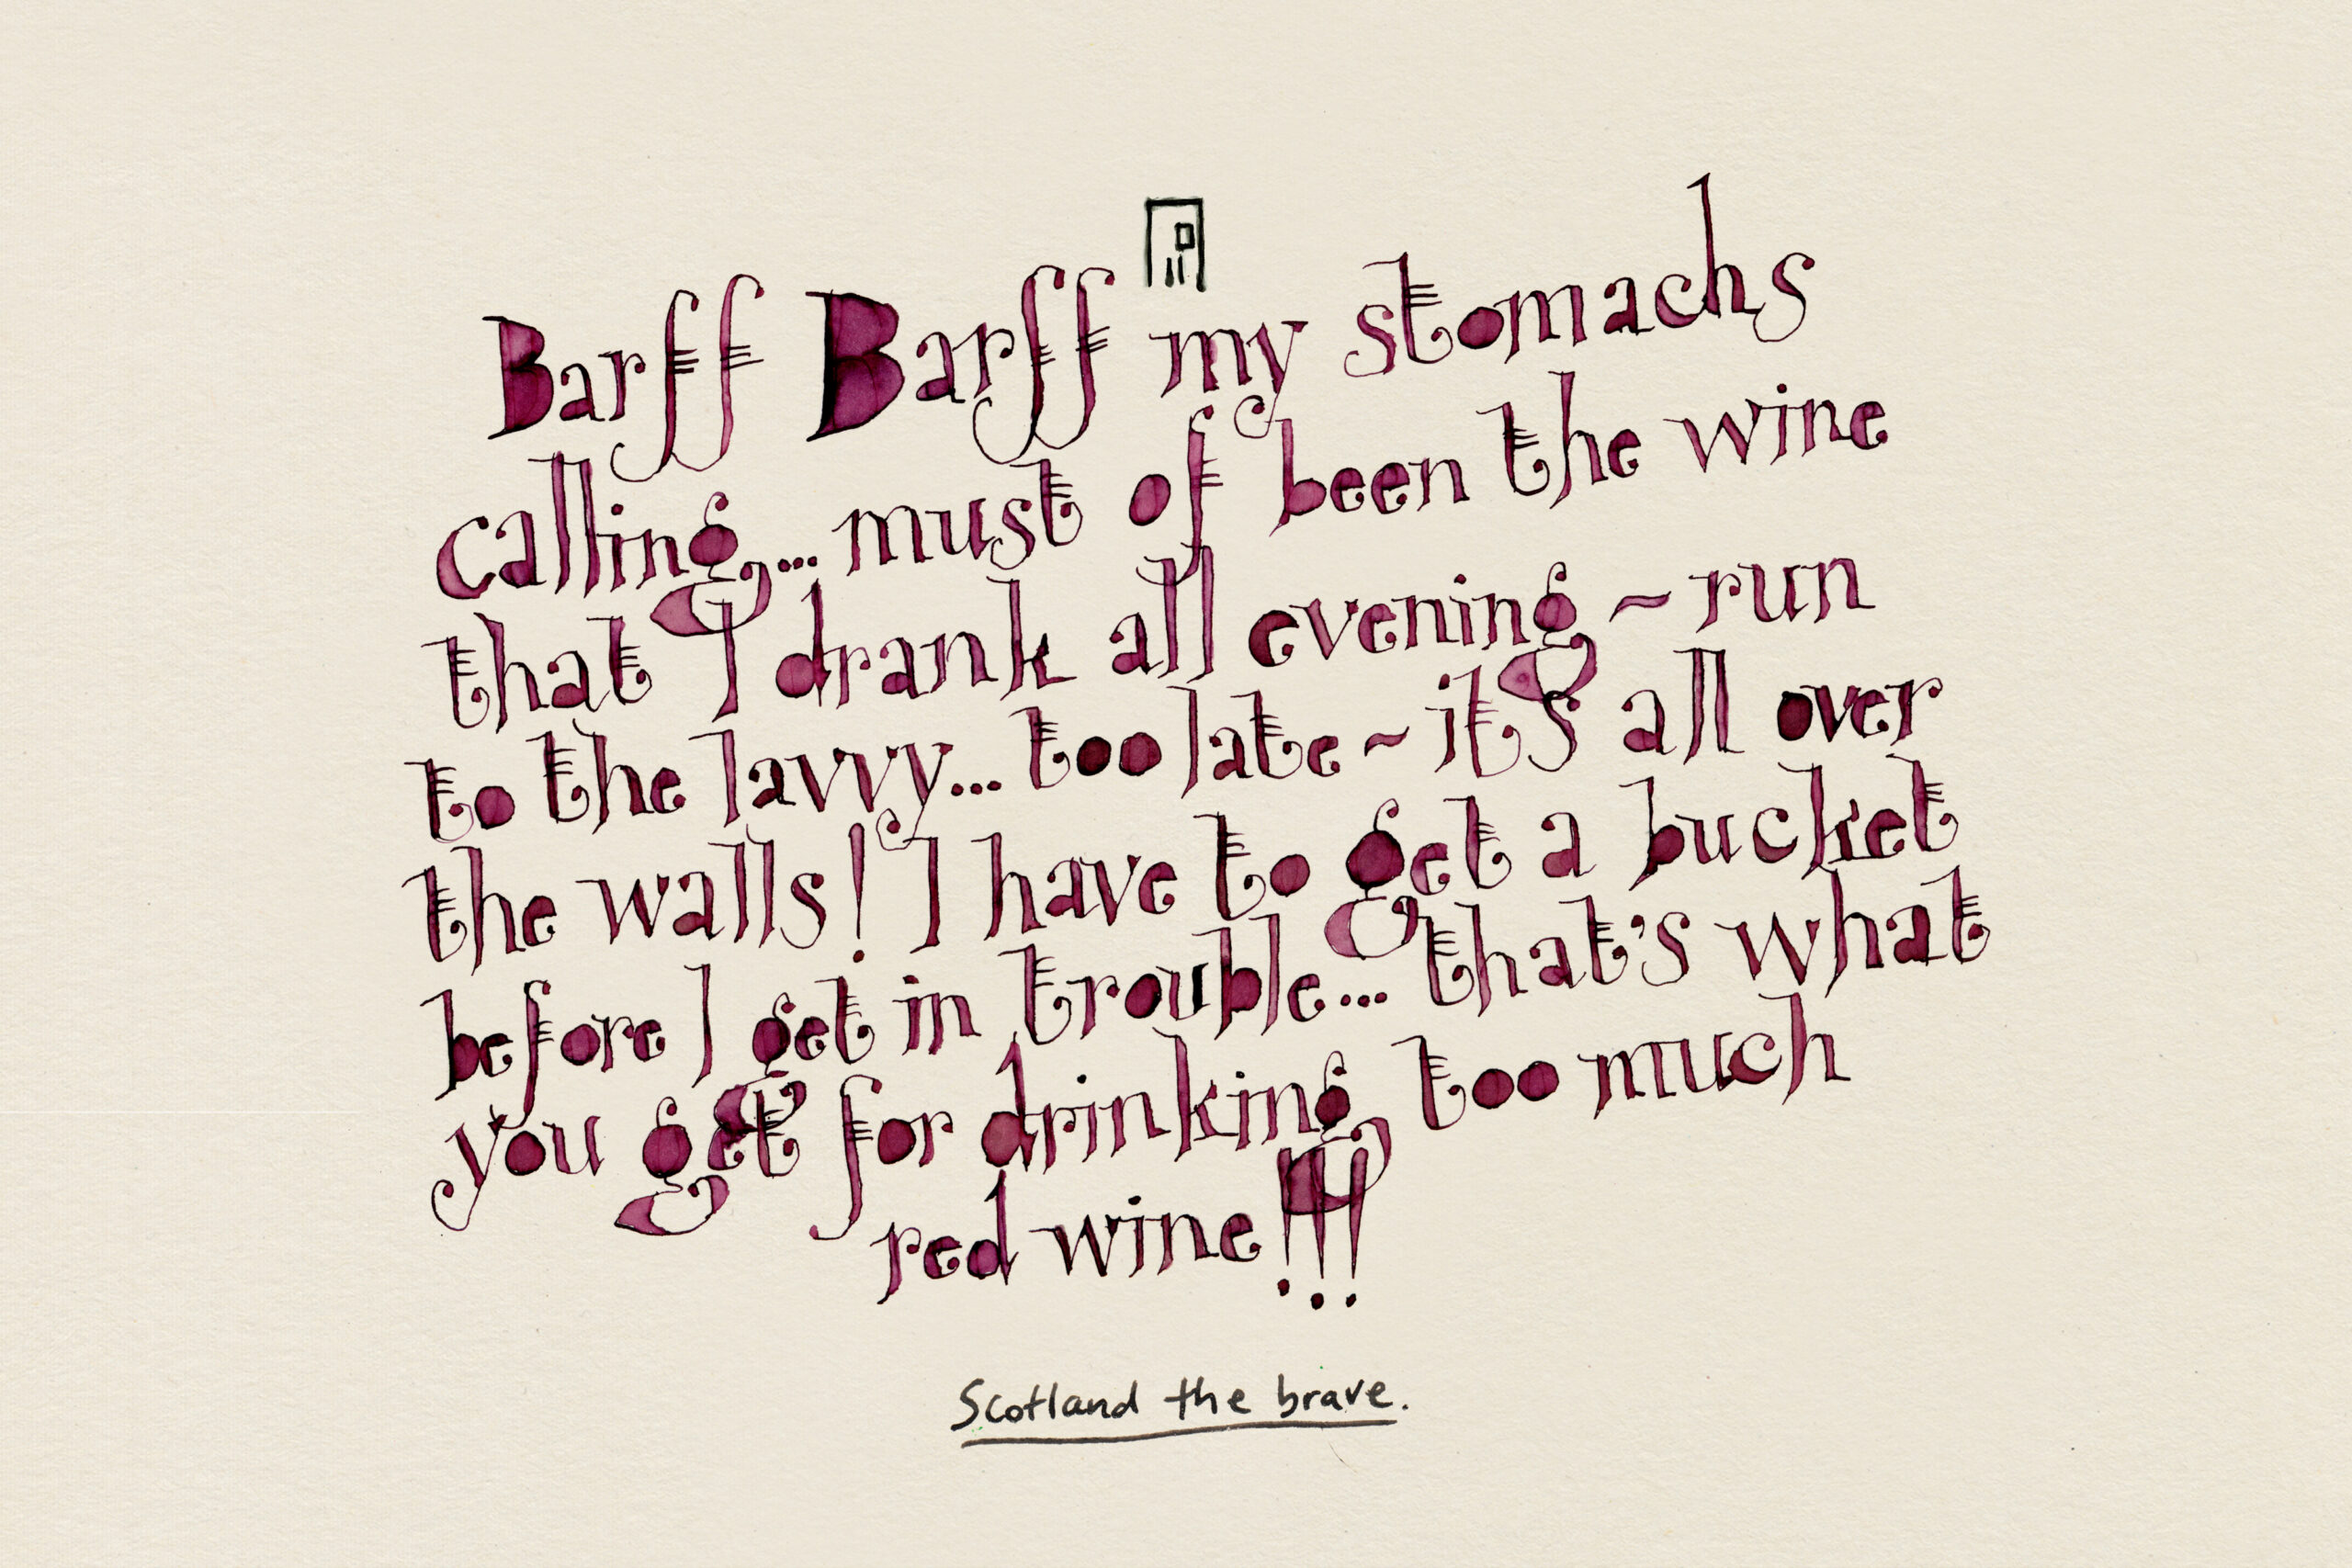 Barff Barff my stomachs
calling... must of been the wine
that I drank all evening ~ run
to the lavvy... too late ~ it's all over
the walls! I have to get a bucket
before I get in trouble... that's what
you get for drinking too much
red wine!!!
Scotland the brave.